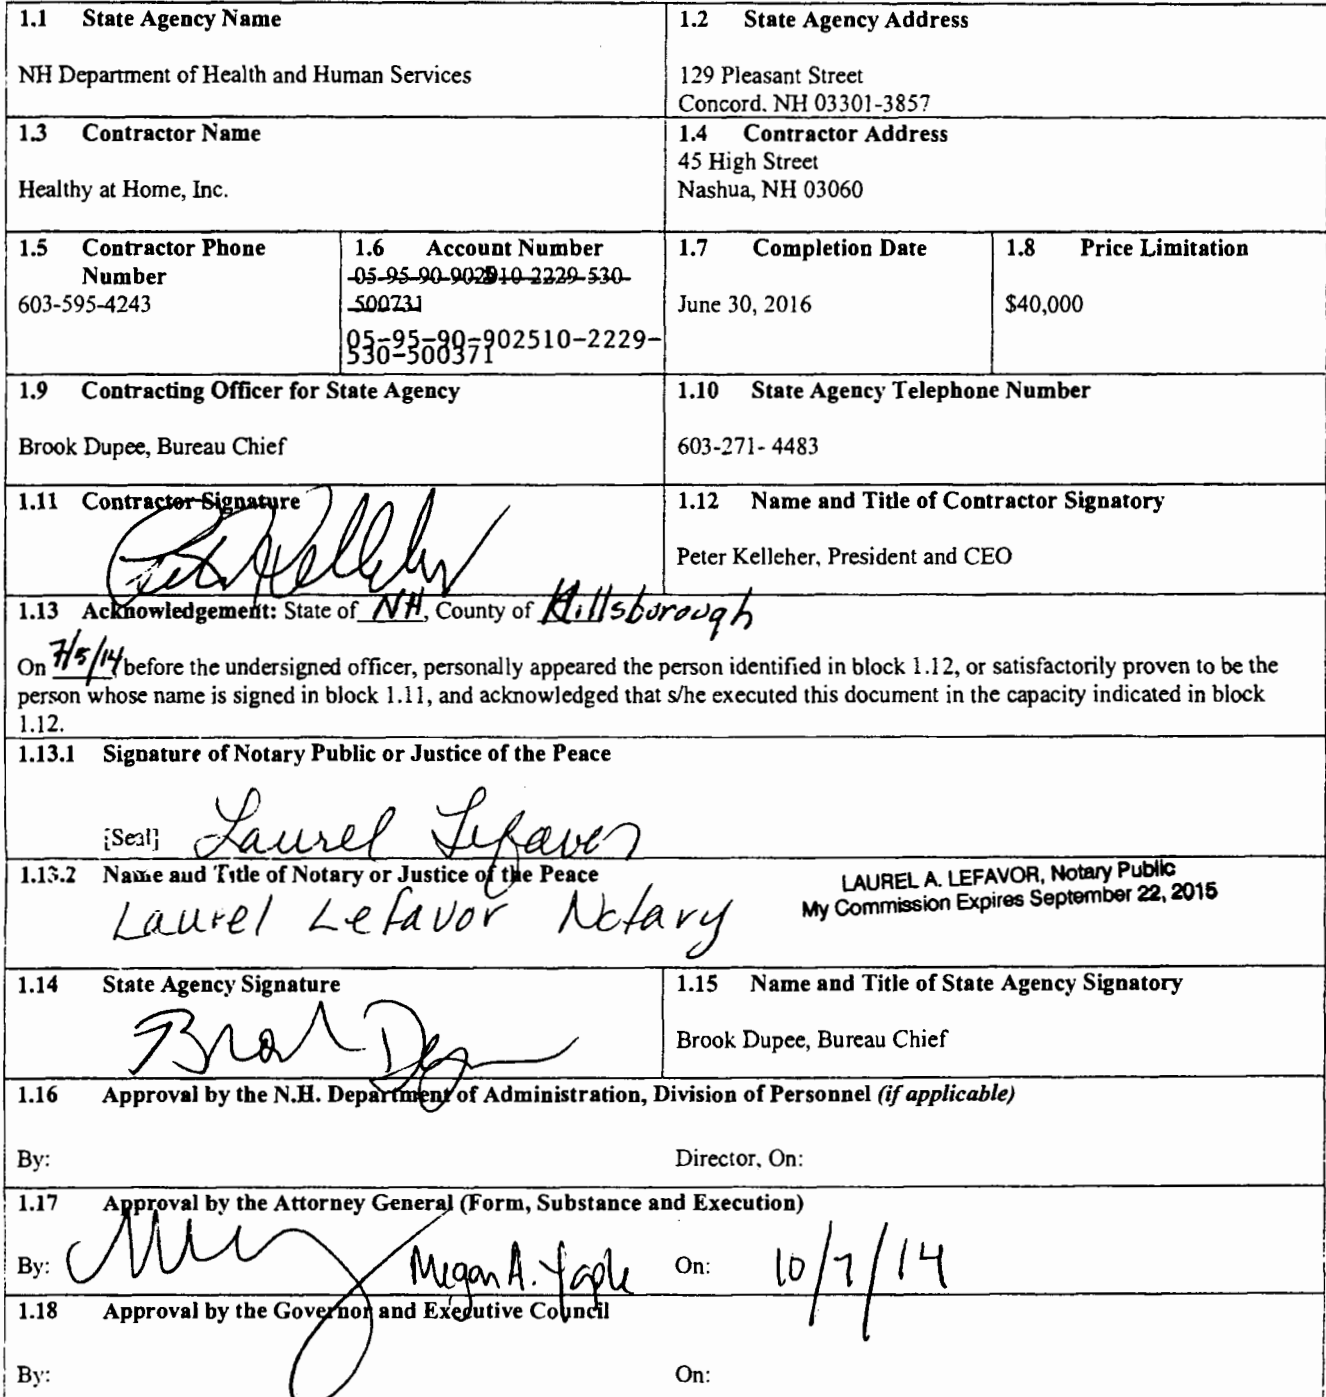 1.1 State Agency Name
NH Department of Health and Human Services
1.2 State Agency Address
129 Pleasant Street
Concord, NH 03301-3857
1.3 Contractor Name
Healthy at Home, Inc.
1.4 Contractor Address
45 High Street
Nashua, NH 03060
1.5 Contractor Phone
Number
603-595-4243
1.6 Account Number
05-95-90-902510-2229-530-
500731
05-95-90-902510-2229-
530-500371
1.7 Completion Date
June 30, 2016
1.8 Price Limitation
$40,000
1.9 Contracting Officer for State Agency
Brook Dupee, Bureau Chief
1.10 State Agency Telephone Number
603-271- 4483
1.11 Contractor Signature
Peter Kelleher
1.12 Name and Title of Contractor Signatory
Peter Kelleher, President and CEO
1.13 Acknowledgement: State of NH, County of Hillsborough
On 7/5/14 before the undersigned officer, personally appeared the person identified in block 1.12, or satisfactorily proven to be the
person whose name is signed in block 1.11, and acknowledged that s/he executed this document in the capacity indicated in block
1.12.
1.13.1 Signature of Notary Public or Justice of the Peace
[Seal] Laurel Lefavor
1.13.2 Name and Title of Notary or Justice of the Peace
Laurel Lefavor Notary
LAUREL A. LEFAVOR, Notary Public
My Commission Expires September 22, 2015
1.14 State Agency Signature
Brook Dupee
1.15 Name and Title of State Agency Signatory
Brook Dupee, Bureau Chief
1.16 Approval by the N.H. Department of Administration, Division of Personnel (if applicable)
By:
Director, On:
1.17 Approval by the Attorney General (Form, Substance and Execution)
By: Megan A. Yaple On: 10/7/14
1.18 Approval by the Governor and Executive Council
By:
On: